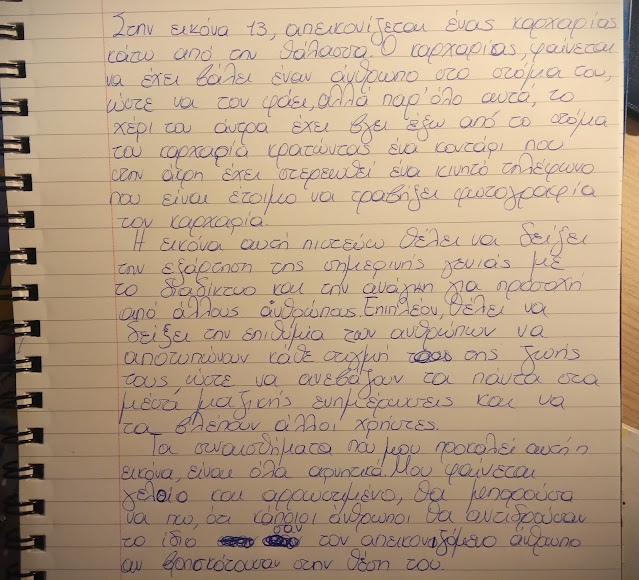 Στην εικόνα 13, απεικονίζεται ένας καρχαρίας
κάτω από την θάλασσα. Ο καρχαρίας, φαίνεται
να έχει βάλει έναν άνθρωπο στο στόμα του,
ώστε να τον φάει, αλλά παρ' όλο αυτά, το
χέρι του άντρα έχει βγει έξω από το στόμα
του καρχαρία κρατώντας ένα κοντάρι που
στην άκρη έχει στερεωθεί ένα κινητό τηλέφωνο
που είναι έτοιμο να τραβήξει φωτογραφία
τον καρχαρία.
Η εικόνα αυτή πιστεύω θέλει να δείξει
την εξάρτηση της σημερινής γενιάς με
το διαδίκτυο και την ανάγκη για προσοχή
από άλλους ανθρώπους. Επιπλέον, θέλει να
δείξει την επιθυμία των ανθρώπων να
αποτυπώνουν κάθε στιγμή της ζωής
τους, ώστε να ανεβάζουν τα πάντα στα
μέσα μαζικής ενημέρωσεις και να
τα βλέπουν άλλοι χρήστες.
Τα συναισθήματα που μου προκαλεί αυτή η
εικόνα, είναι όλα αρνητικά. Μου φαίνεται
γελοίο και αρρωστημένο, θα μπορούσα
να πω, ότι κάποιοι άνθρωποι θα αντιδρούσαν
το ίδιο σαν τον απεικονιζόμενο άνθρωπο
αν βρισκόντουσαν στην θέση του.